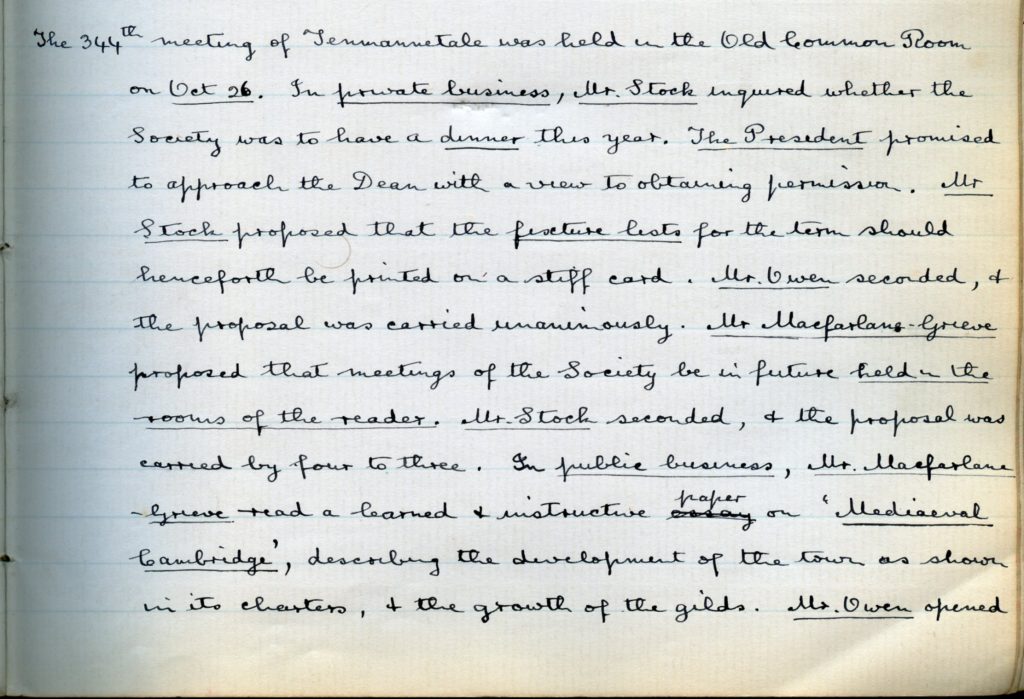 The 344th meeting of Tenmannetale was held in the Old Common Room
on Oct 26. In private business, Mr. Stock inquired whether the
Society was to have a dinner this year. The President promised
to approach the Dean with a view to obtaining permission. Mr
Stock proposed that the fixture lists for the term should
henceforth be printed on a stiff card. Mr. Owen seconded, &
the proposal was carried unanimously. Mr Macfarlane-Grieve
proposed that meetings of the Society be in future held in the
rooms of the reader. Mr. Stock seconded, & the proposal was
carried by four to three. In public business, Mr. Macfarlane
-Grieve read a learned & instructive essay paper on 'Mediaeval
Cambridge', describing the development of the town as shown
in its charters, & the growth of the gilds. Mr. Owen opened